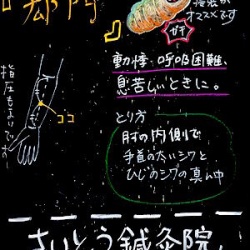 『郄門』
オススメです
ガオ
動悸・呼吸困難、
息苦しいときに。
指圧もよいですよー
ココ
とり方
肘の内側で
手首の太いシワと
ひじのシワの真ん中
さいとう鍼灸院